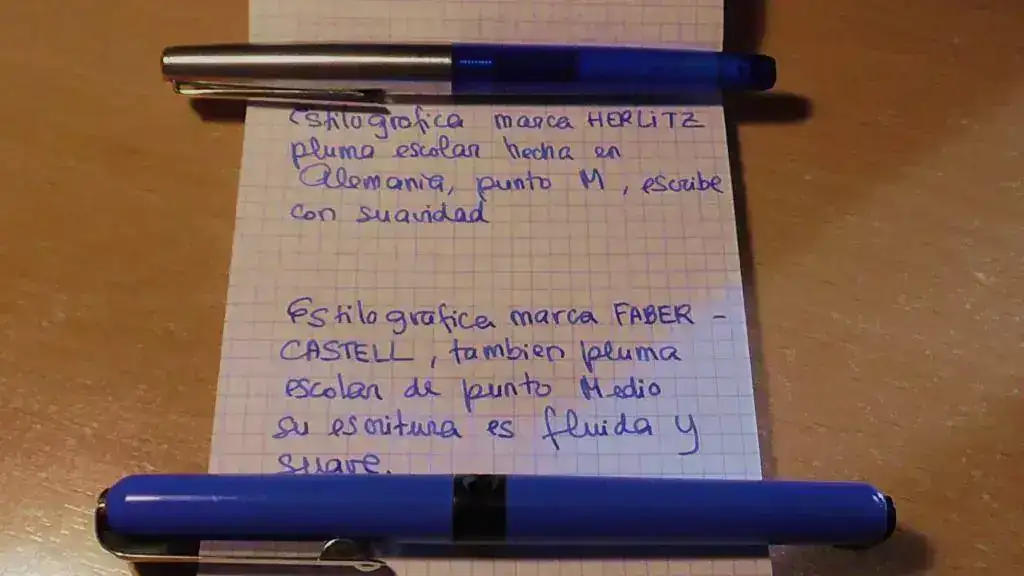 Estilografica marca HERLITZ
pluma escolar hecha en
Alemania, punto M, escribe
con suavidad
Estilografica marca FABER -
CASTELL, tambien pluma
escolar de punto Medio
su escritura es fluida y
suave.